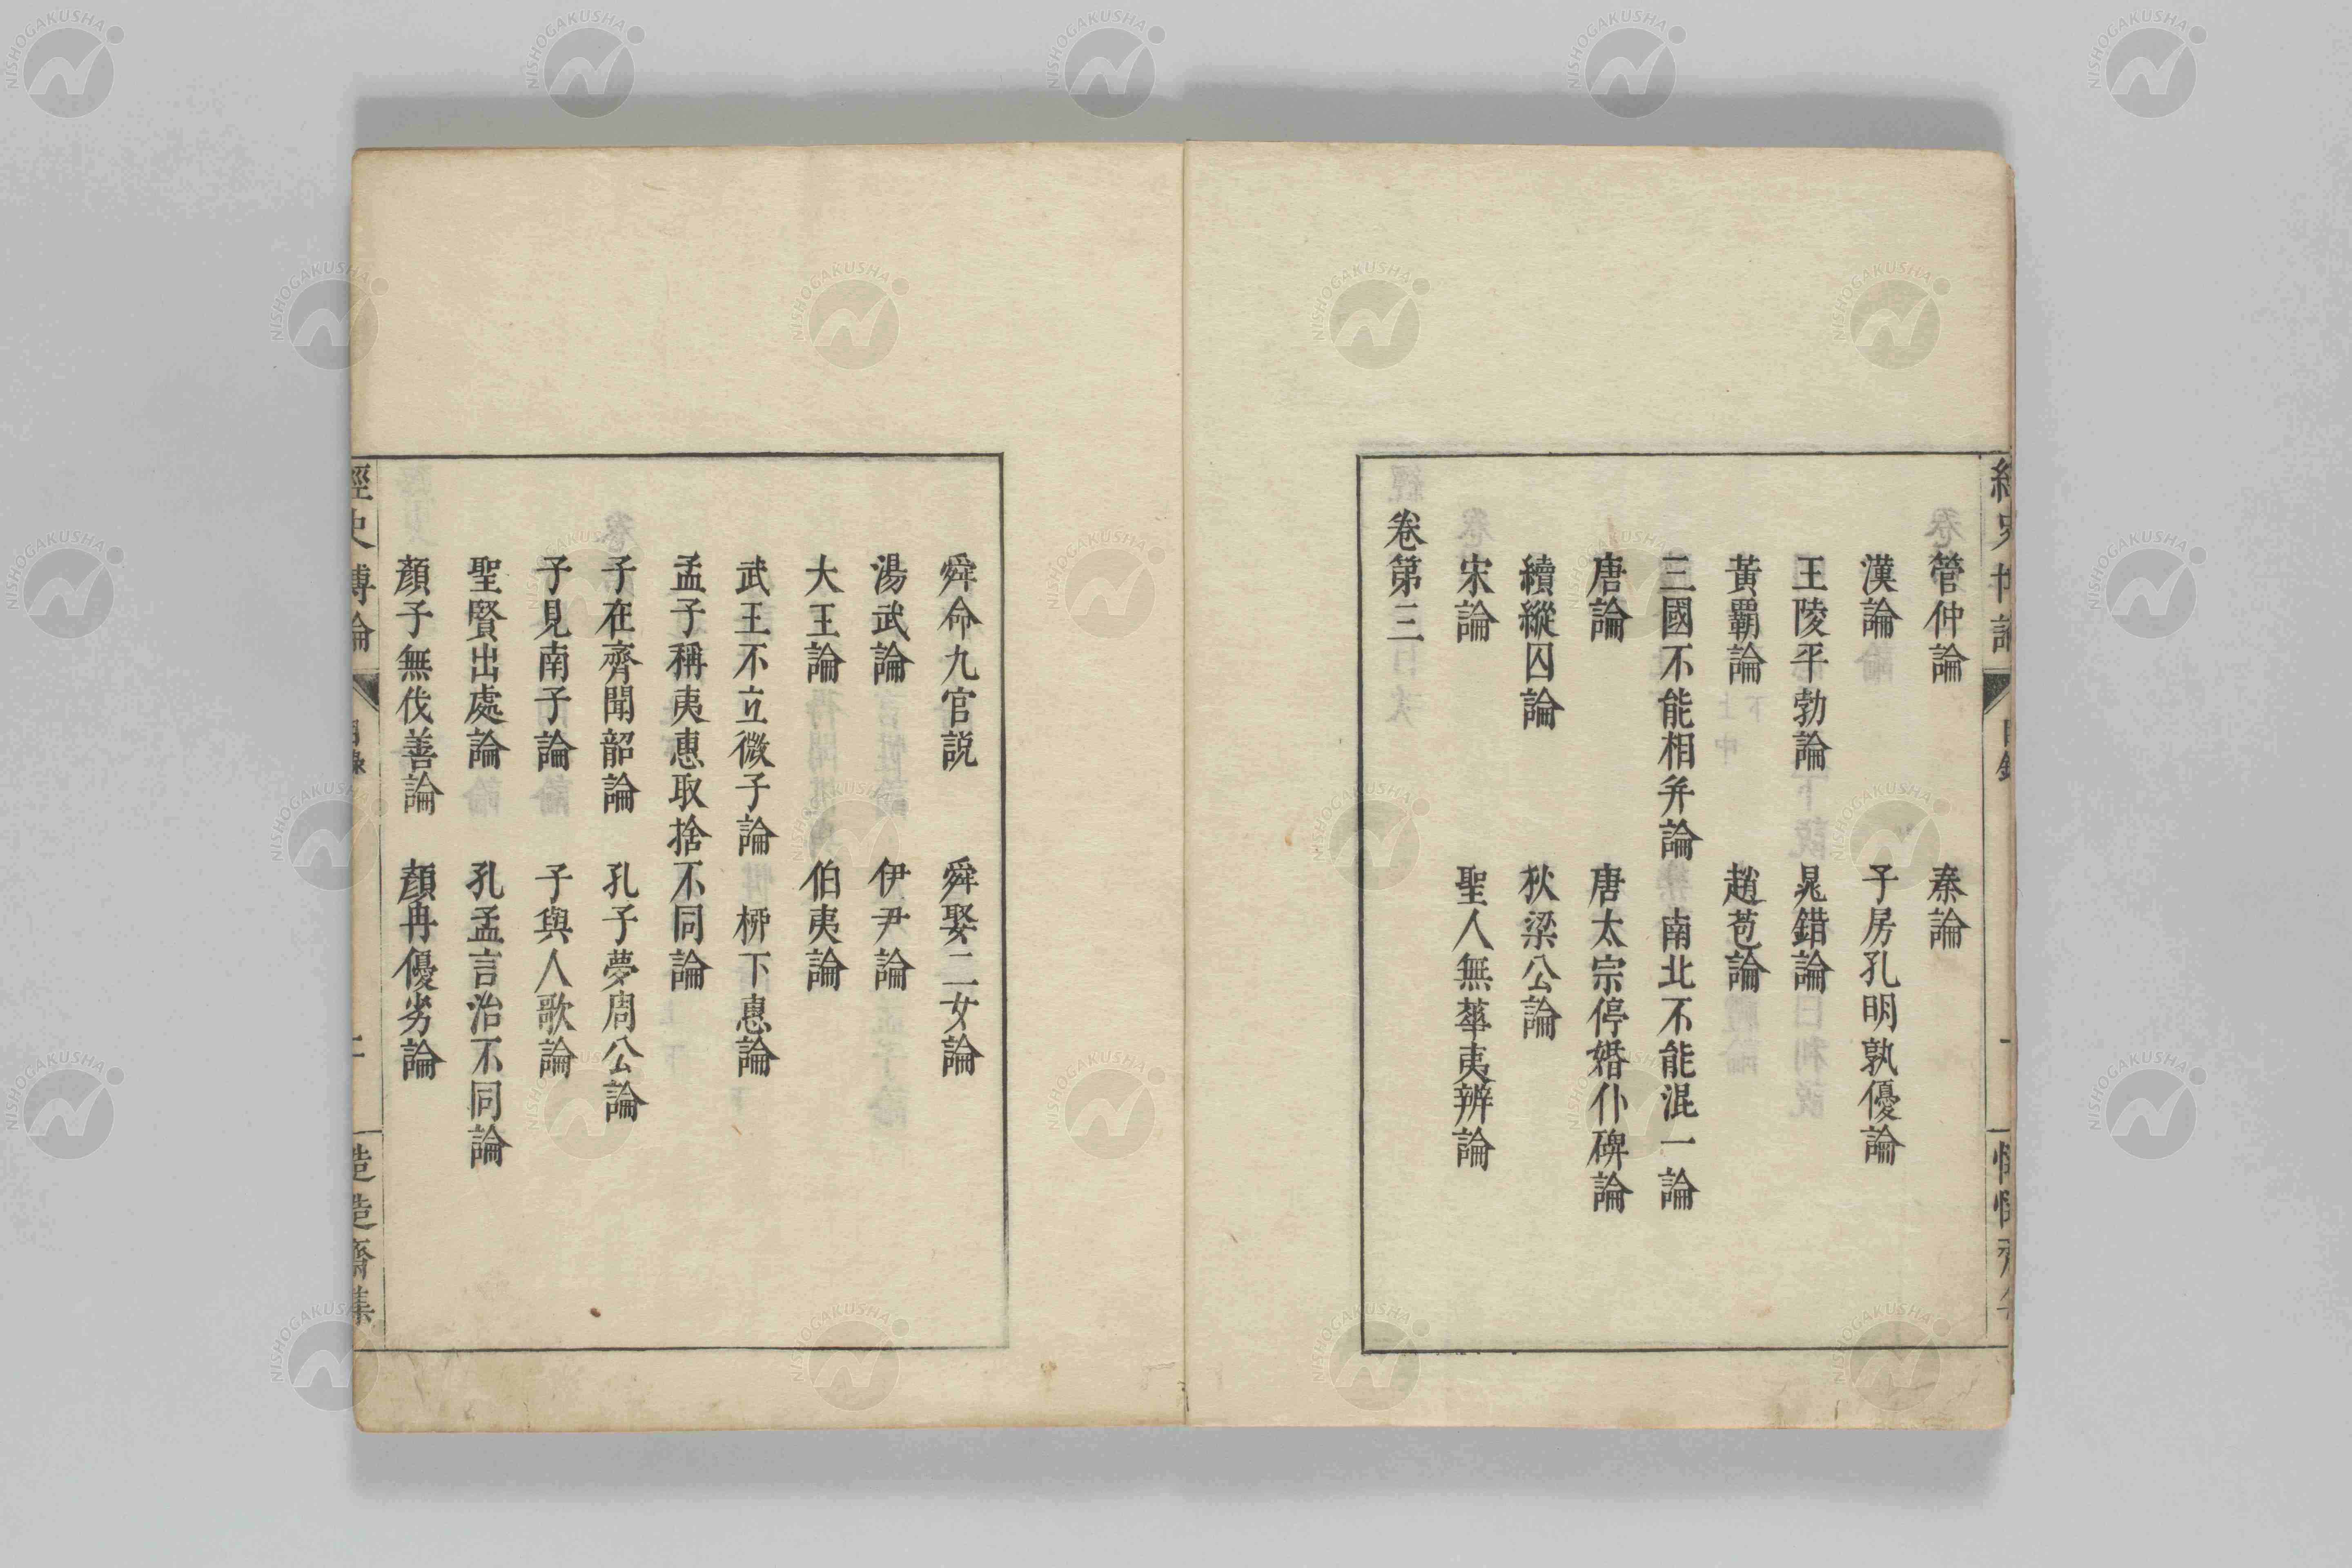 管仲論　秦論
漢論　子房孔明孰優論
王陵平勃論　晁錯論
黃霸論　趙苞論
三國不能相弁論　南北不能混一論
唐論　唐太宗停婚仆碑論
續縱囚論　狄梁公論
宋論　聖人無華夷辨論
卷第三
舜命九官説　舜娶二女論
湯武論　伊尹論
大王論　伯夷論
武王不立微子論　柳下惠論
孟子稱夷惠取捨不同論
子在齊聞韶論　孔子夢周公論
子見南子論　子與人歌論
聖賢出處論　孔孟言治不同論
顏子無伐善論　顏冉優劣論
經史博論
目錄
二
慥慥齋集
NISHOGAKUSHA